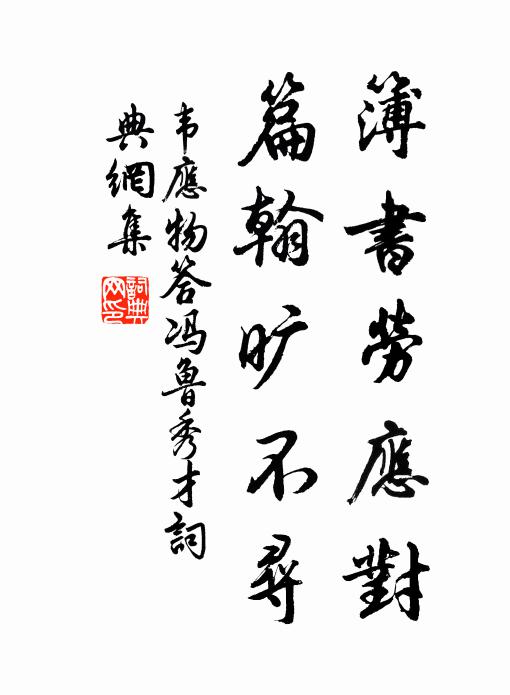 簿書勞應對
篇翰旷不尋
韦應物答冯魯秀才詞
典網集
詞典
网印